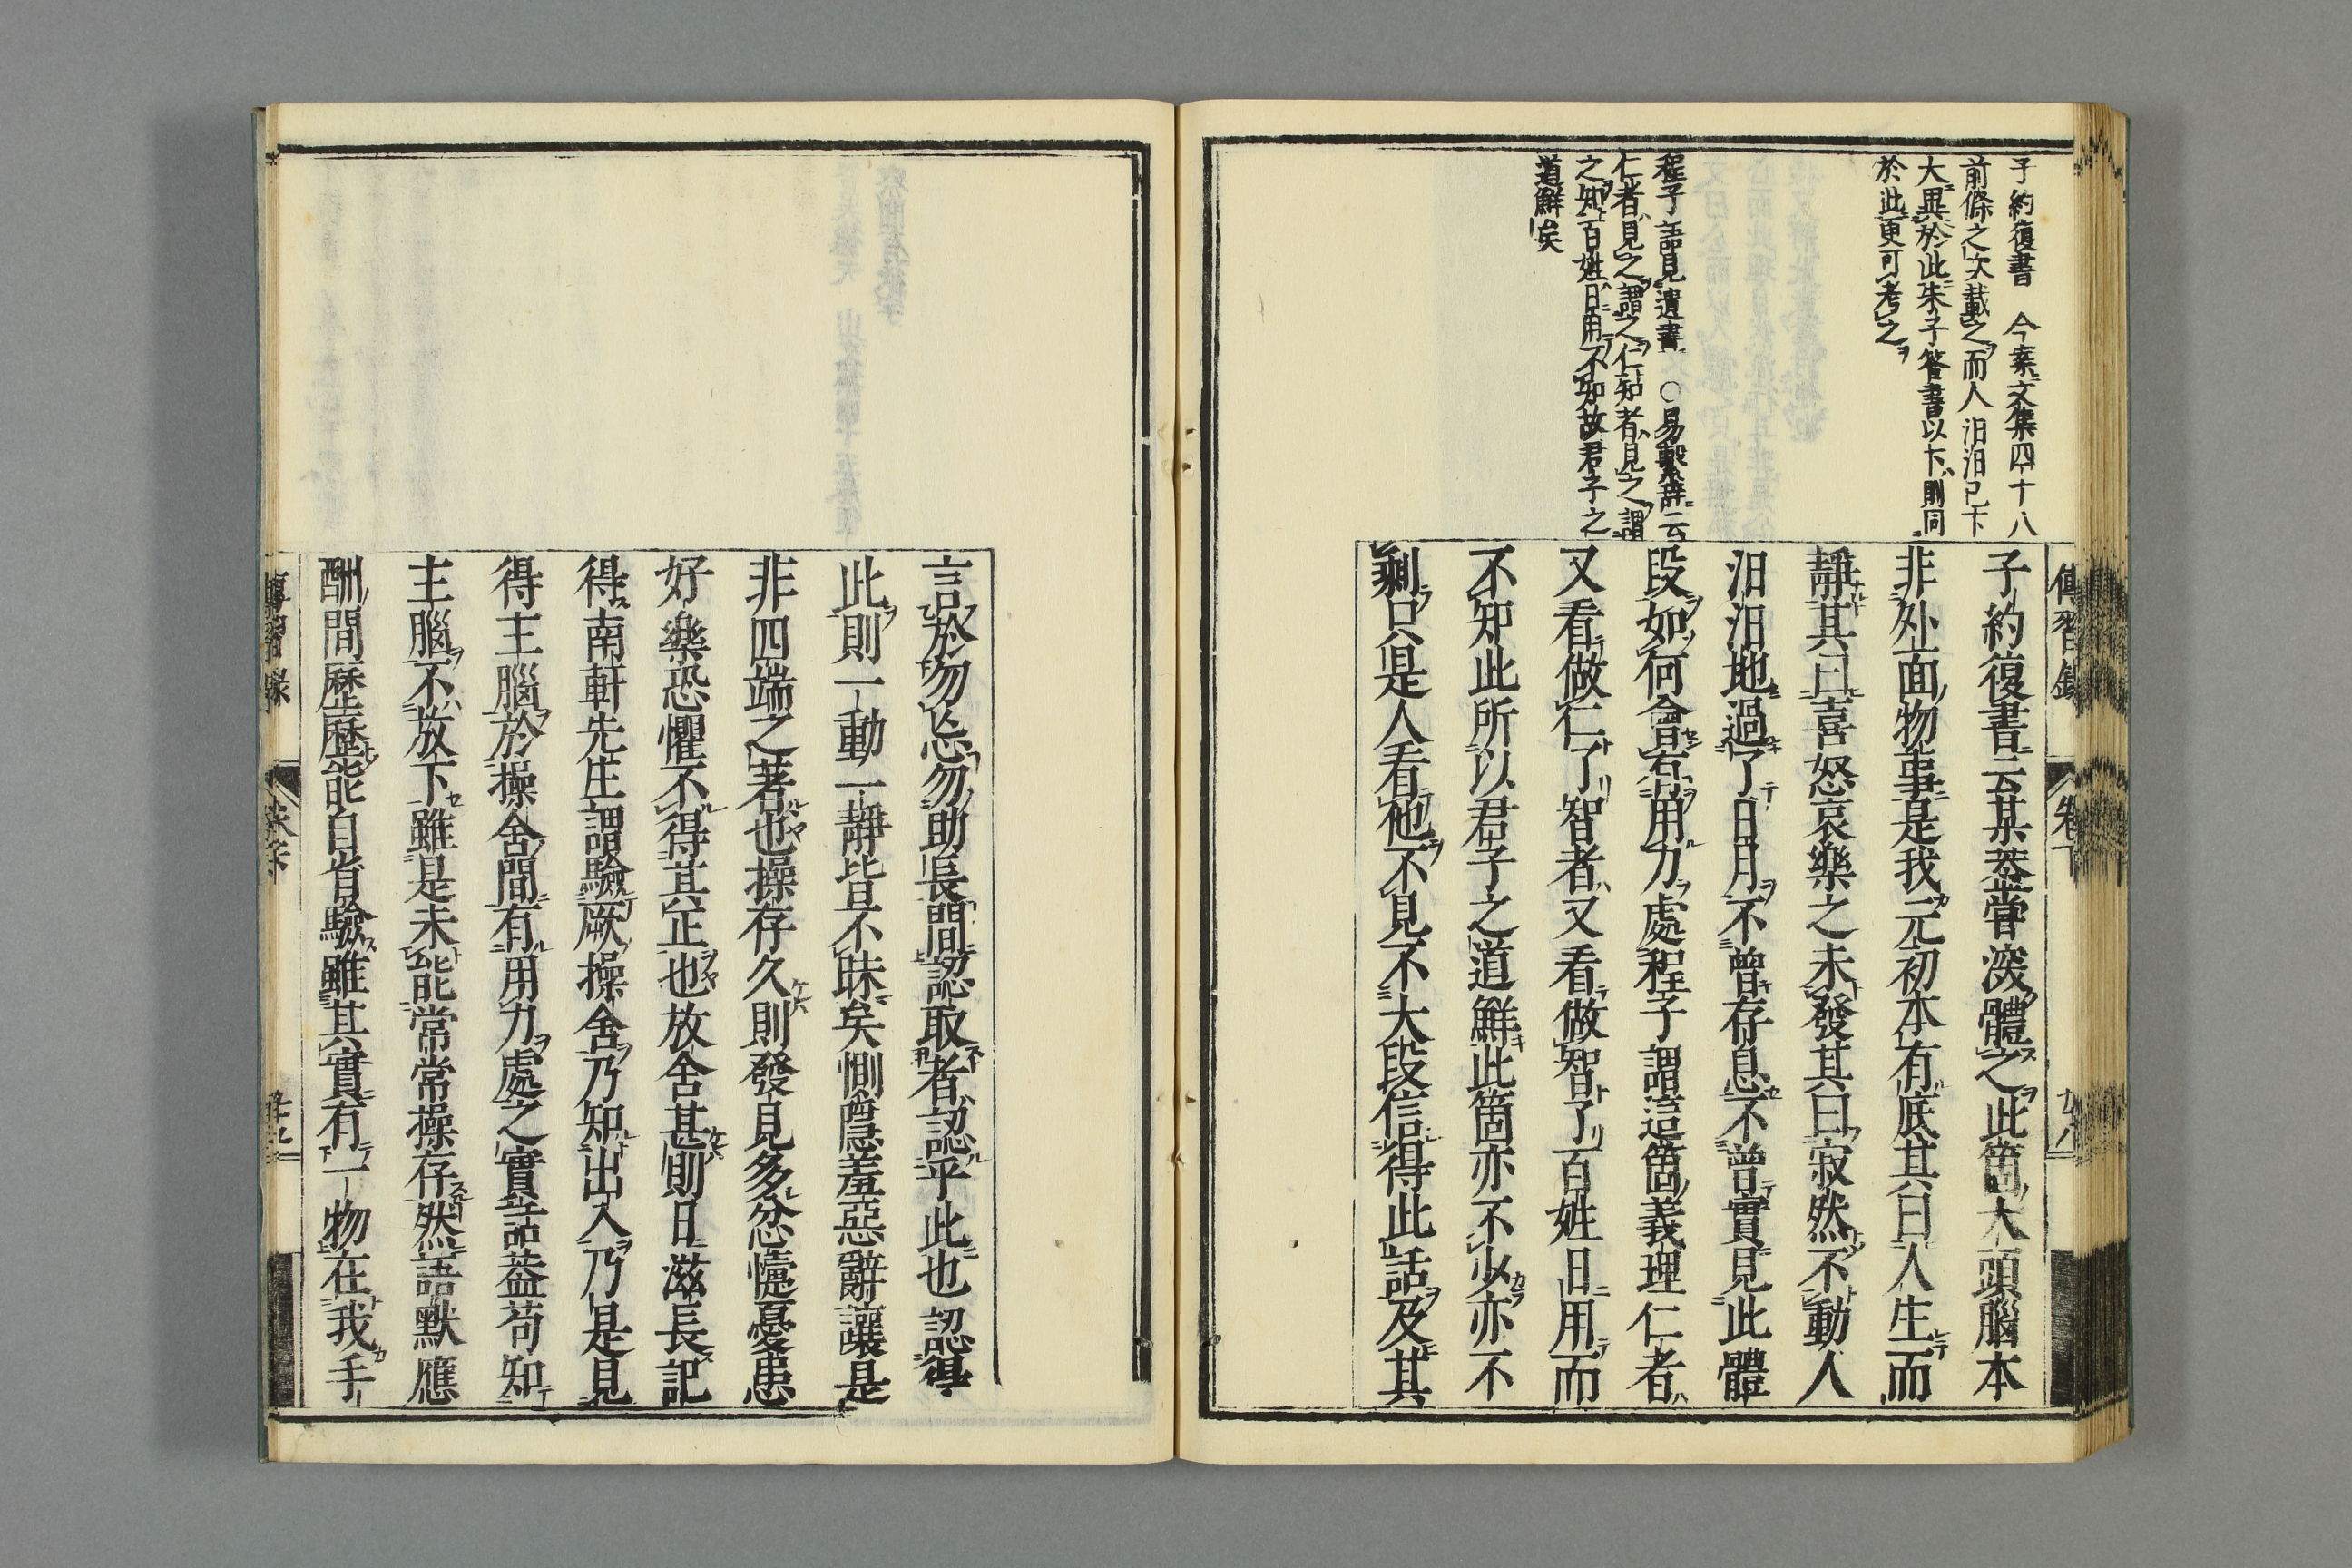 傳習錄 卷下
子約復書 今案文集四十八
前條之次載之而人汨汨已下
大異於此朱子答書以下則同
於此更可考之
程子語見遺書 ○易繫辭云
仁者見之謂之仁知者見之謂
之知百姓日用不知故君子之
道鮮矣
子約復書云某葢甞深體之此箇大頭腦本
非外面物事是我元初本有底其曰人生而
靜其曰喜怒哀樂之未發其曰寂然不動人
汨汨地過了日月不曾存息不曾實見此體
段如何會有用力處程子謂這箇義理仁者
又看做仁了智者又看做智了百姓日用而
不知此所以君子之道鮮此箇亦不少亦不
剩只是人看他不見不大段信得此話及其
言於勿忘勿助長間認取者認乎此也認得
此則一動一靜皆不昧矣惻隱羞惡辭讓是
非四端之著也操存久則發見多忿懥憂患
好樂恐懼不得其正也放舍甚則日滋長記
得南軒先生謂驗厥操舍乃知出入乃是見
得主腦於操舍間有用力處之實話葢苟知
主腦不放下雖是未能常常操存然語默應
酬間歷歷能自省驗雖其實有一物在我手
傳習錄